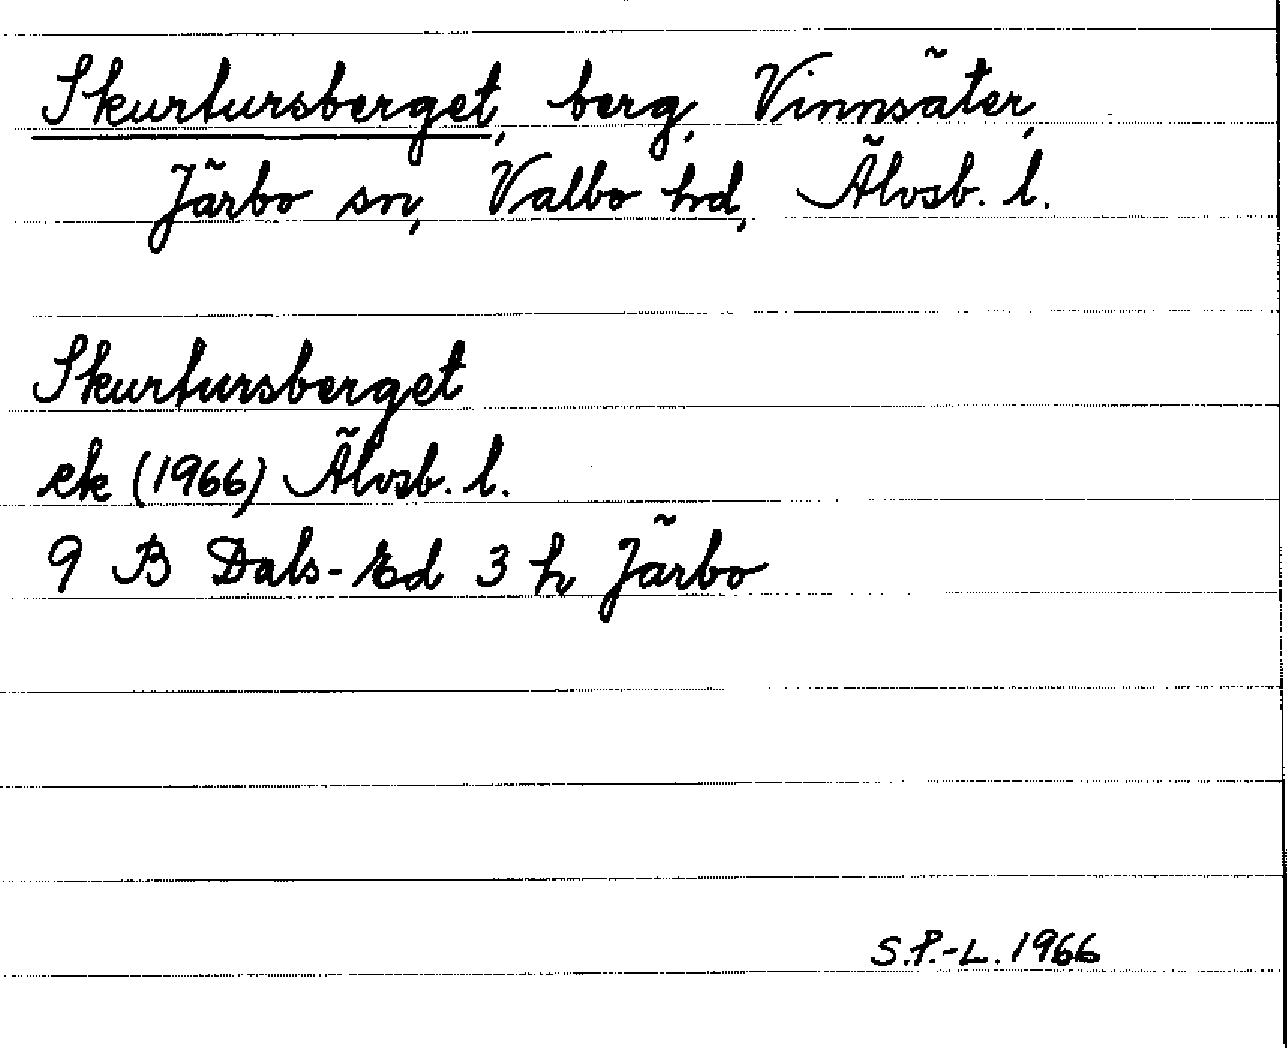 Skurtursberget, berg, Vinnsäter,
Järbo sn, Valbo hd, Älvsb. l.
Skurtursberget
ek (1966) Älvsb. l.
9 B Dals-Ed 3 h Järbo
S.P.-L. 1966